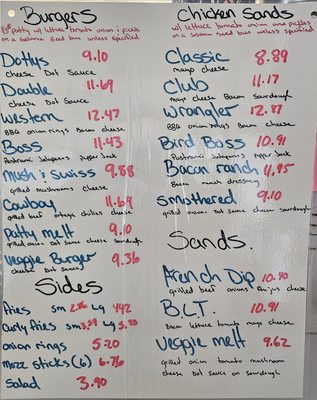 Burgers
patty w/ lettuce tomato onion & pickle
on a sesame seed bun unless specified
Dottys 9.10
cheese Dot Sauce
Double 11.69
cheese Dot Sauce
Western 12.47
BBQ onion rings Bacon cheese
Boss 11.43
Pastrami Jalapenos Pepper Jack
Mush & Swiss 9.88
grilled mushrooms cheese
Cowboy 11.69
grilled beef ortega chilies cheese
Patty melt 9.10
grilled onion Dot sauce cheese sourdough
Veggie Burger 9.36
cheese Dot sauce
Sides
Fries sm 2.86 Lg 4.42
Curly Fries sm 3.59 Lg 5.20
onion rings 5.20
mozz sticks (6) 6.76
Salad 3.90
Chicken Sands
w/ lettuce tomato onion and pickles
on a sesame seed bun unless specified
Classic 8.89
mayo cheese
Club 11.17
mayo cheese Bacon Sourdough
Wrangler 12.87
BBQ onion rings Bacon cheese
Bird Boss 10.91
Pastrami Jalapenos Pepper Jack
Bacon ranch 11.95
Bacon ranch dressing
Smothered 9.10
grilled onions Dot sauce cheese sourdough
Sands.
French Dip 10.90
grilled beef onions Aujus cheese
B.L.T. 10.91
Bacon lettuce tomato mayo cheese
Veggie melt 9.62
grilled onion tomato mushroom
cheese Dot sauce on sourdough